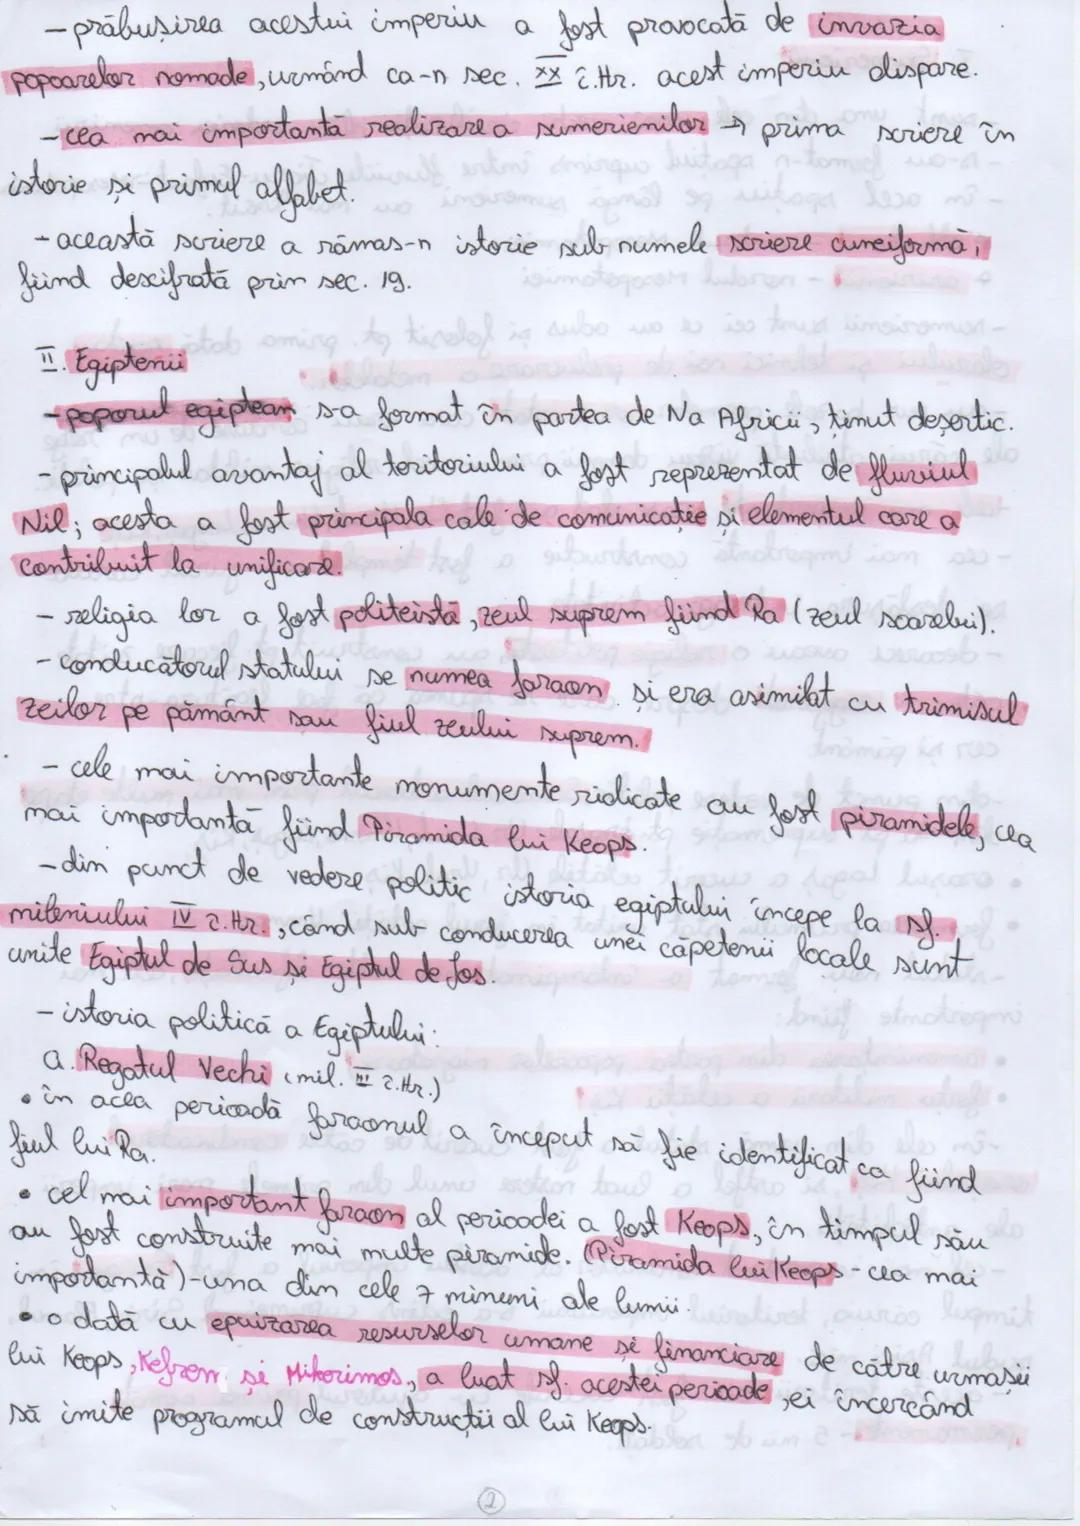 - prăbușirea acestui imperiu a fost provocată de invazia
popoarelor nomade, urmând ca-n sec. XX î.Hr. acest imperiu dispare.
- cea mai importantă realizare a sumerienilor → prima scriere în
istorie și primul alfabet.
- această scriere a rămas-n istorie sub numele scriere cuneiformă,
fiind descifrată prin sec. 19.
II. Egiptenii
- poporul egiptean s-a format în partea de N a Africii, ținut deșertic.
- principalul avantaj al teritoriului a fost reprezentat de fluviul
Nil; acesta a fost principala cale de comunicație și elementul care a
contribuit la unificare.
- religia lor a fost politeistă, zeul suprem fiind Ra (zeul soarelui).
- conducătorul statului se numea faraon și era asimilat cu trimisul
zeilor pe pământ sau fiul zeului suprem.
- cele mai importante monumente ridicate au fost piramidele, cea
mai importantă fiind Piramida lui Keops.
- din punct de vedere politic istoria egiptului începe la sf.
mileniului IV î.Hr., când sub conducerea unei căpetenii locale sunt
unite Egiptul de Sus și Egiptul de Jos.
- istoria politică a Egiptului:
a. Regatul Vechi (mil. III î.Hr.)
• în acea perioadă faraonul a început să fie identificat ca fiind
fiul lui Ra.
• cel mai important faraon al perioadei a fost Keops, în timpul său
au fost construite mai multe piramide. (Piramida lui Keops - cea mai
importantă) - una din cele 7 minuni ale lumii.
• o dată cu epuizarea resurselor umane și financiare de către urmașii
lui Keops, Kefren și Mikerinos, a luat sf. acestei perioade, ei încercând
să imite programul de construcții al lui Keops.
2